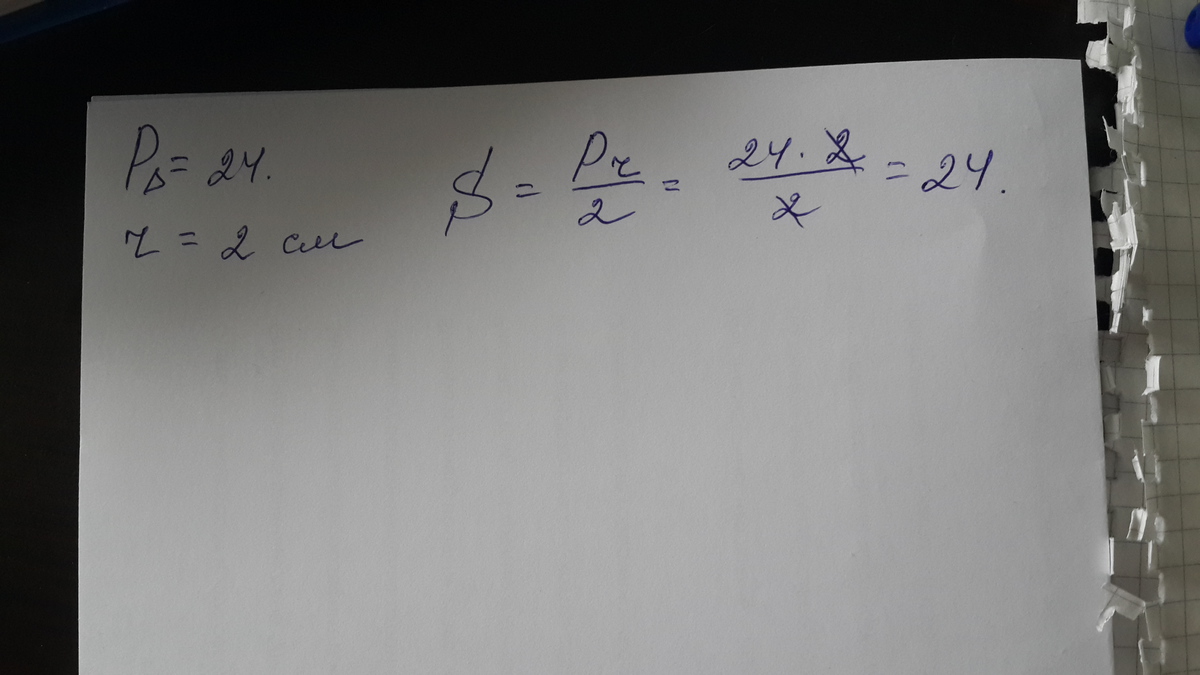 P△ = 24.
r = 2 см
S = Pr/2 = 24·2/2 = 24.